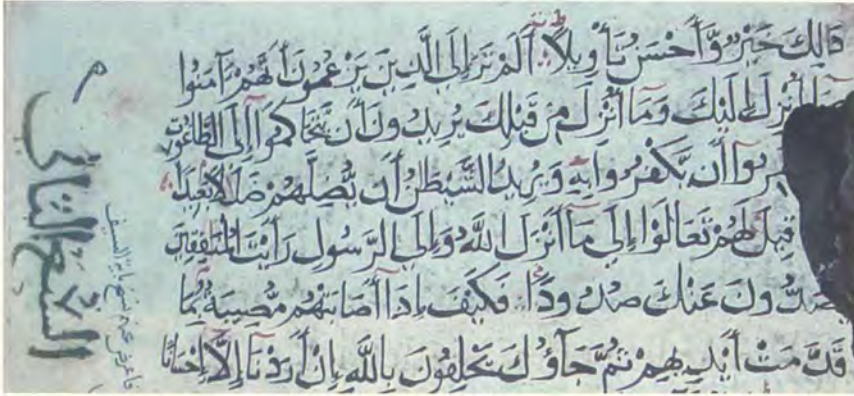 ذَالِكَ خَيْرٌ وَّأَحْسَنُ تَأْوِيلًا أَلَمْ تَرَ إِلَى الَّذِينَ يَزْعُمُونَ أَنَّهُمْ ءَامَنُوا
أُنْزِلَ إِلَيْكَ وَمَا أُنْزِلَ مِنْ قَبْلِكَ يُرِيدُونَ أَنْ يَّتَحَاكَمُوا إِلَى الطَّاغُوتِ
أَنْ يَّكْفُرُوا بِهِ وَيُرِيدُ الشَّيْطَنُ أَنْ يُّضِلَّهُمْ ضَلَلًا بَعِيدًا
قِيلَ لَهُمْ تَعَالَوْا إِلَى مَا أَنْزَلَ اللَّهُ وَإِلَى الرَّسُولِ رَأَيْتَ الْمُنَفِقِينَ
يَصُدُّونَ عَنْكَ صُدُودًا فَكَيْفَ إِذَا أَصَابَتْهُمْ مُّصِيبَةٌ بِمَا
قَدَّمَتْ أَيْدِيهِمْ ثُمَّ جَآؤُكَ يَحْلِفُونَ بِاللَّهِ إِنْ أَرَدْنَا إِلَّا إِحْسَانًا
السبع الثاني
فاعرض عنهم نسختها آية السيف